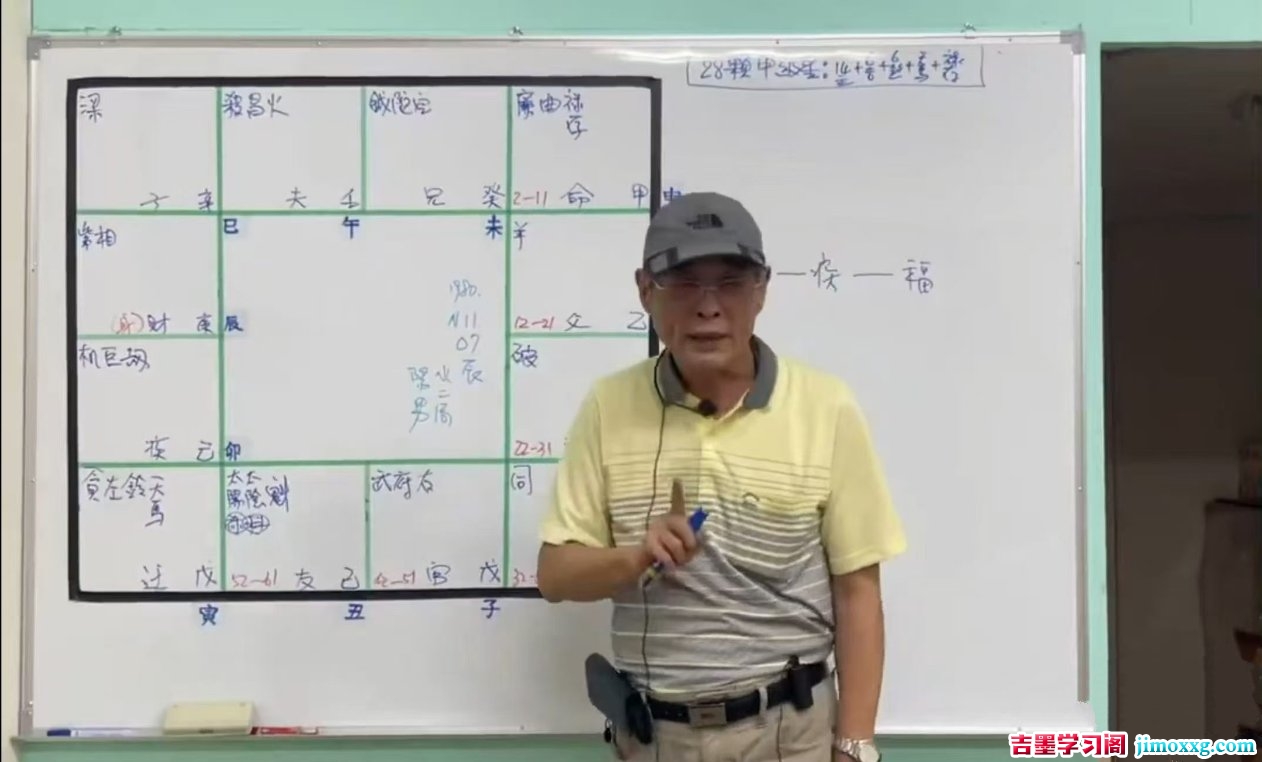 28顆甲級星:14+
梁
子 辛
巳
殺昌火
夫 壬
午
鉞陀空
兄 癸
未
廉曲祿存
2-11 命 甲
申
紫相
(身)財 庚
辰
羊
12-21 父 乙
机巨劫
疾 己
卯
破
22-31
貪左鈴天馬
迁 戊
寅
太陽 太陰 魁
52-61 友 己
丑
武府右
42-51 官 戊
子
同
1980.
N11
07
辰
陽男
水二局
—疾—福
THE NORTH FACE
吉墨学习阁 jimoxxg.com